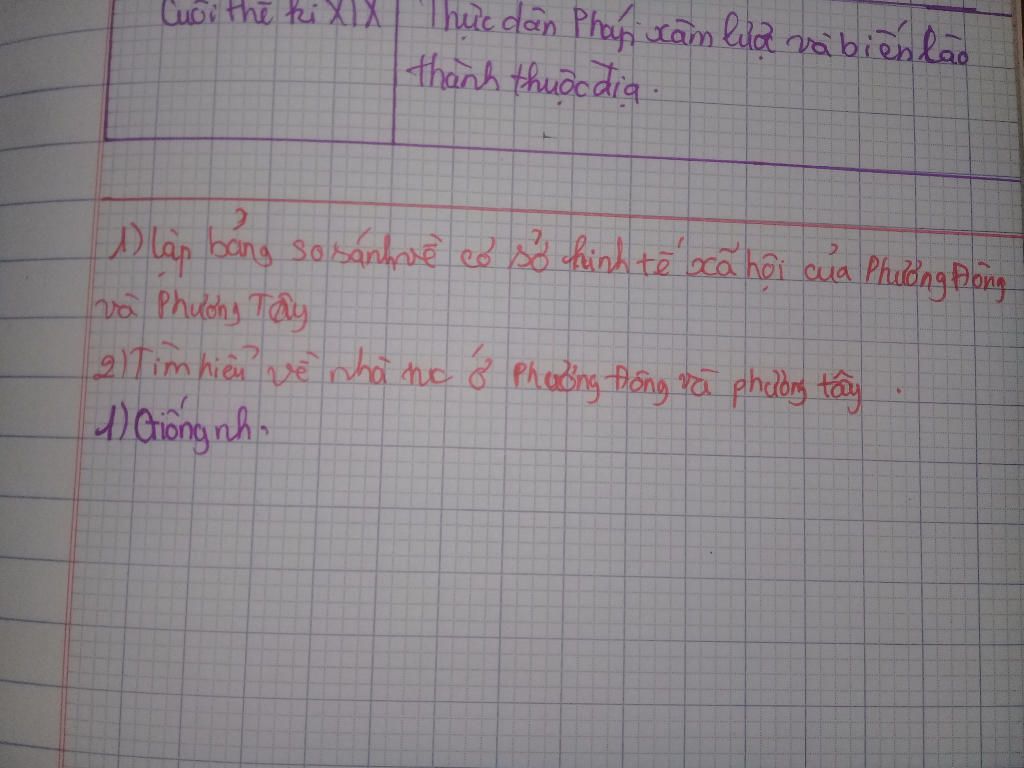 Cuối thế kỉ XIX
Thực dân Pháp xâm lược và biến Lào
thành thuộc địa.
1) lập bảng so sánh về cơ sở kinh tế xã hội của Phương Đông
và Phương Tây
2) Tìm hiểu về nhà nc ở Phương Đông và phương tây.
1) Giống nh.